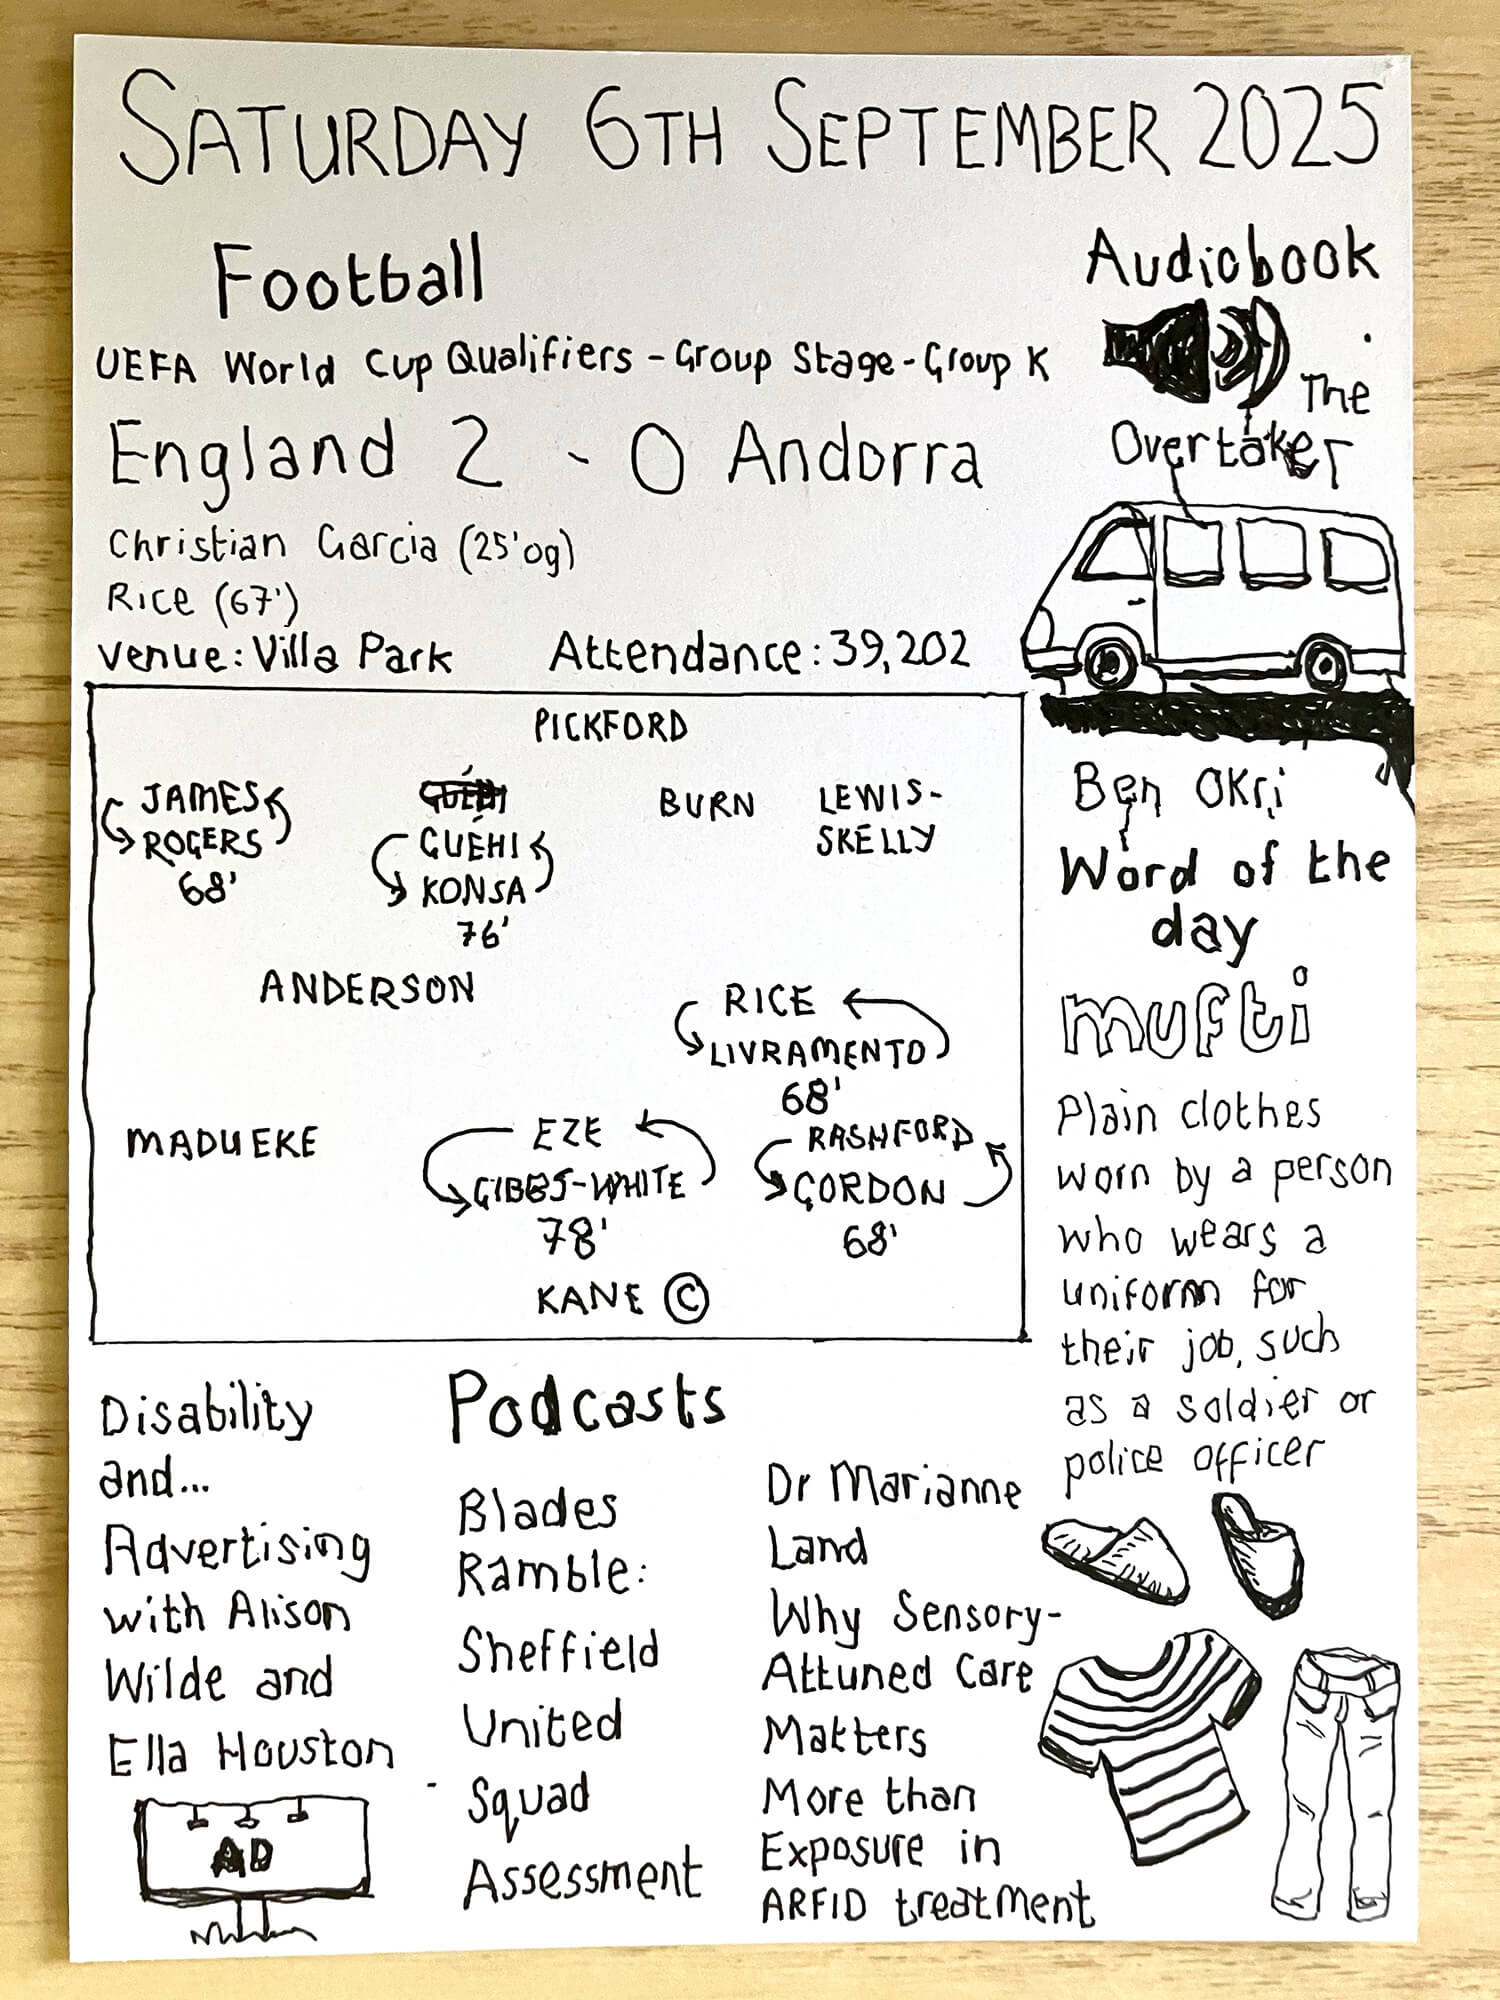 SATURDAY 6TH SEPTEMBER 2025
Football
UEFA World Cup Qualifiers - Group Stage - Group K
England 2 - 0 Andorra
Christian Garcia (25'og)
Rice (67')
Venue: Villa Park Attendance: 39,202
PICKFORD
JAMES
ROGERS
68'
GUÉHI
GUÉHI
KONSA
76'
BURN
LEWIS-
SKELLY
ANDERSON
RICE
LIVRAMENTO
68'
MADUEKE
EZE
GIBBS-WHITE
78'
RASHFORD
GORDON
68'
KANE ©
Audiobook
The
Overtaker
Ben Okri
Word of the
day
mufti
Plain clothes
worn by a person
who wears a
uniform for
their job, such
as a soldier or
police officer
Podcasts
Disability
and...
Advertising
with Alison
Wilde and
Ella Houston
AD
Blades
Ramble:
Sheffield
United
Squad
Assessment
Dr Marianne
Land
Why Sensory-
Attuned Care
Matters
More than
Exposure in
ARFID treatment